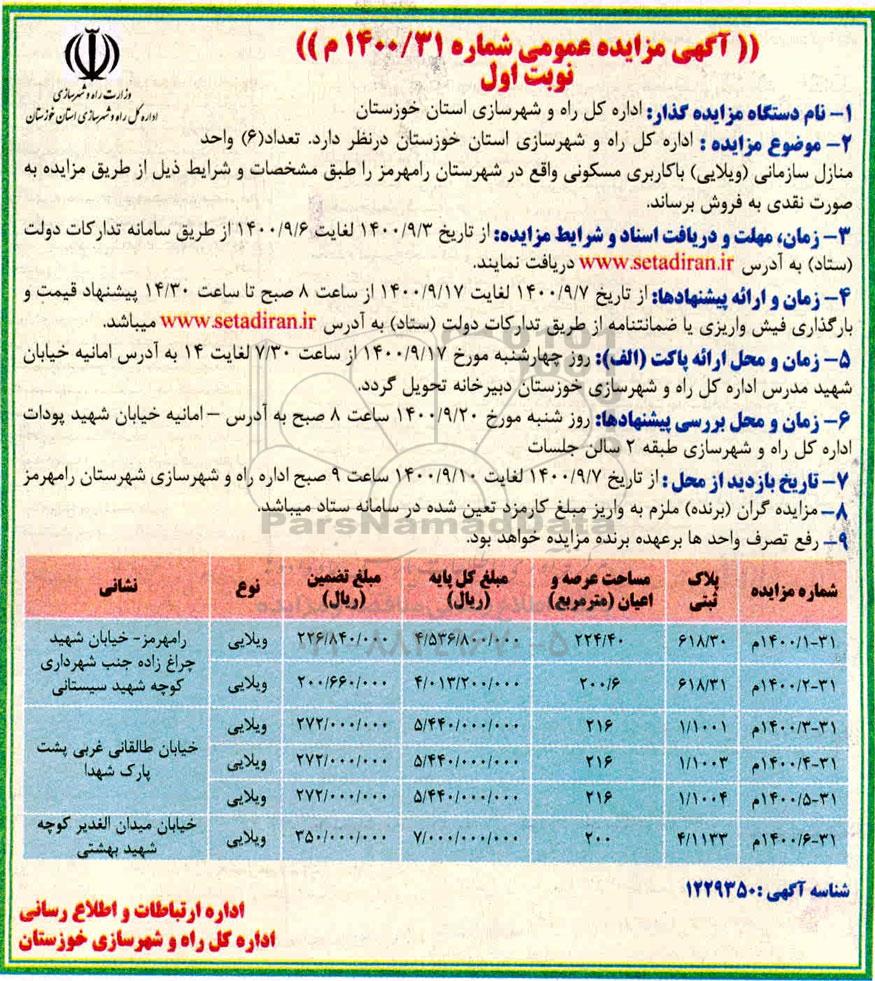 (( آگهی مزایده عمومی شماره ۱۴۰۰/۳۱ م ))
نوبت اول
وزارت راه و شهرسازی
اداره کل راه و شهرسازی استان خوزستان
۱- نام دستگاه مزایده گذار: اداره کل راه و شهرسازی استان خوزستان
۲- موضوع مزایده : اداره کل راه و شهرسازی استان خوزستان درنظر دارد. تعداد(۶) واحد
منازل سازمانی (ویلایی) باکاربری مسکونی واقع در شهرستان رامهرمز را طبق مشخصات و شرایط ذیل از طریق مزایده به
صورت نقدی به فروش برساند.
۳- زمان، مهلت و دریافت اسناد و شرایط مزایده: از تاریخ ۱۴۰۰/۹/۳ لغایت ۱۴۰۰/۹/۶ از طریق سامانه تدارکات دولت
(ستاد) به آدرس www.setadiran.ir دریافت نمایند.
۴- زمان و ارائه پیشنهادها: از تاریخ ۱۴۰۰/۹/۷ لغایت ۱۴۰۰/۹/۱۷ از ساعت ۸ صبح تا ساعت ۱۴/۳۰ پیشنهاد قیمت و
بارگذاری فیش واریزی یا ضمانتنامه از طریق تدارکات دولت (ستاد) به آدرس www.setadiran.ir میباشد.
۵- زمان و محل ارائه پاکت (الف): روز چهارشنبه مورخ ۱۴۰۰/۹/۱۷ از ساعت ۷/۳۰ لغایت ۱۴ به آدرس امانیه خیابان
شهید مدرس اداره کل راه و شهرسازی خوزستان دبیرخانه تحویل گردد.
۶- زمان و محل بررسی پیشنهادها: روز شنبه مورخ ۱۴۰۰/۹/۲۰ ساعت ۸ صبح به آدرس –امانیه خیابان شهید پودات
اداره کل راه و شهرسازی طبقه ۲ سالن جلسات
۷- تاریخ بازدید از محل : از تاریخ ۱۴۰۰/۹/۷ لغایت ۱۴۰۰/۹/۱۰ ساعت ۹ صبح اداره راه و شهرسازی شهرستان رامهرمز
۸- مزایده گران (برنده) ملزم به واریز مبلغ کارمزد تعین شده در سامانه ستاد میباشد.
ParsNamadData
۹- رفع تصرف واحد ها برعهده برنده مزایده خواهد بود.
شماره مزایده | پلاک ثبتی | مساحت عرصه و اعیان (مترمربع) | مبلغ کل پایه (ریال) | مبلغ تضمین (ریال) | نوع | نشانی
۱۴۰۰/۱-۳۱م | ۶۱۸/۳۰ | ۲۲۴/۴۰ | ۴/۵۳۶/۸۰۰/۰۰۰ | ۲۲۶/۸۴۰/۰۰۰ | ویلایی | رامهرمز- خیابان شهید چراغ زاده جنب شهرداری کوچه شهید سیستانی
۱۴۰۰/۲-۳۱م | ۶۱۸/۳۱ | ۲۰۰/۶ | ۴/۰۱۳/۲۰۰/۰۰۰ | ۲۰۰/۶۶۰/۰۰۰ | ویلایی
۱۴۰۰/۳-۳۱م | ۱/۱۰۰۱ | ۲۱۶ | ۵/۴۴۰/۰۰۰/۰۰۰ | ۲۷۲/۰۰۰/۰۰۰ | ویلایی | خیابان طالقانی غربی پشت پارک شهدا
۱۴۰۰/۴-۳۱م | ۱/۱۰۰۳ | ۲۱۶ | ۵/۴۴۰/۰۰۰/۰۰۰ | ۲۷۲/۰۰۰/۰۰۰ | ویلایی
۱۴۰۰/۵-۳۱م | ۱/۱۰۰۴ | ۲۱۶ | ۵/۴۴۰/۰۰۰/۰۰۰ | ۲۷۲/۰۰۰/۰۰۰ | ویلایی
۱۴۰۰/۶-۳۱م | ۴/۱۱۳۳ | ۲۰۰ | ۷/۰۰۰/۰۰۰/۰۰۰ | ۳۵۰/۰۰۰/۰۰۰ | ویلایی | خیابان میدان الغدیر کوچه شهید بهشتی
شناسه آگهی :۱۲۲۹۳۵۰
اداره ارتباطات و اطلاع رسانی
اداره کل راه و شهرسازی خوزستان